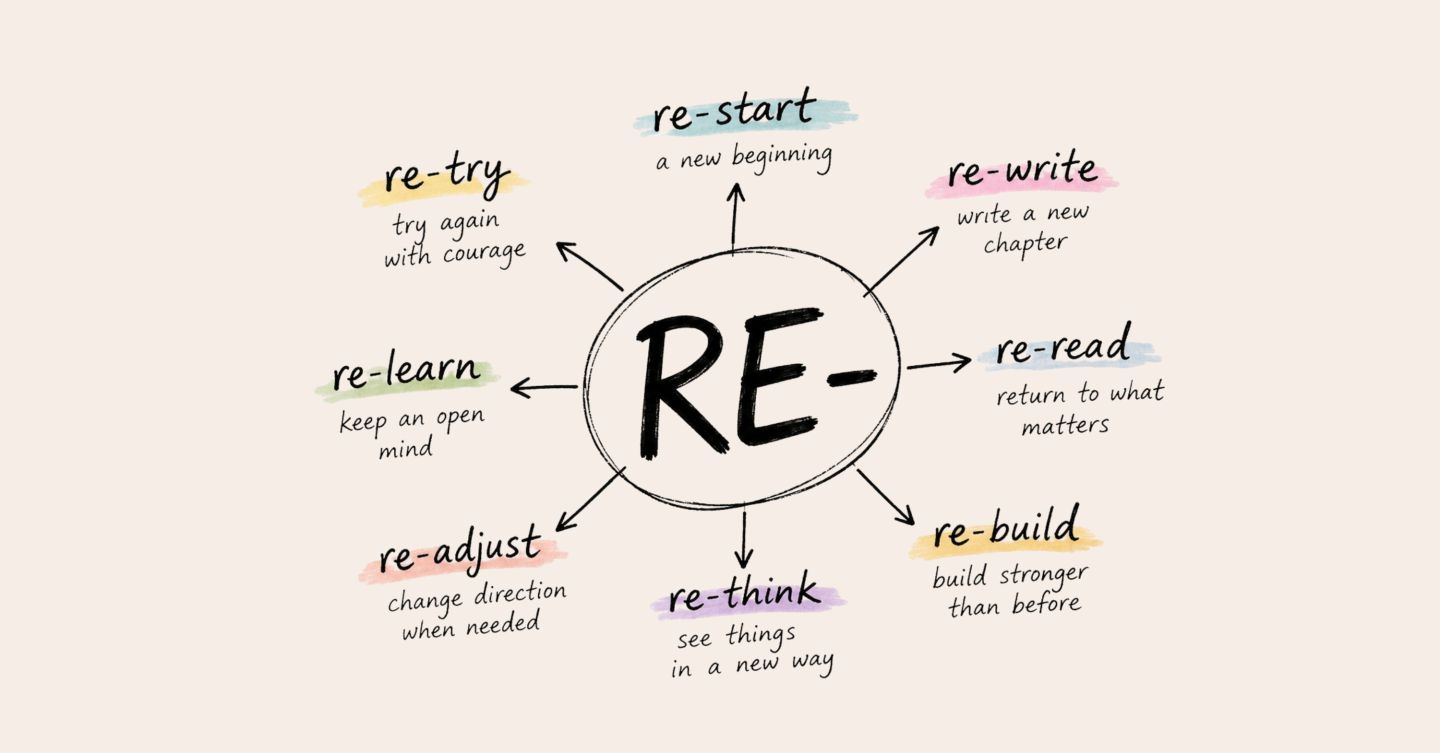 re-start
a new beginning
re-try
try again
with courage
re-write
write a new
chapter
RE-
re-learn
keep an open
mind
re-read
return to what
matters
re-adjust
change direction
when needed
re-think
see things
in a new way
re-build
build stronger
than before